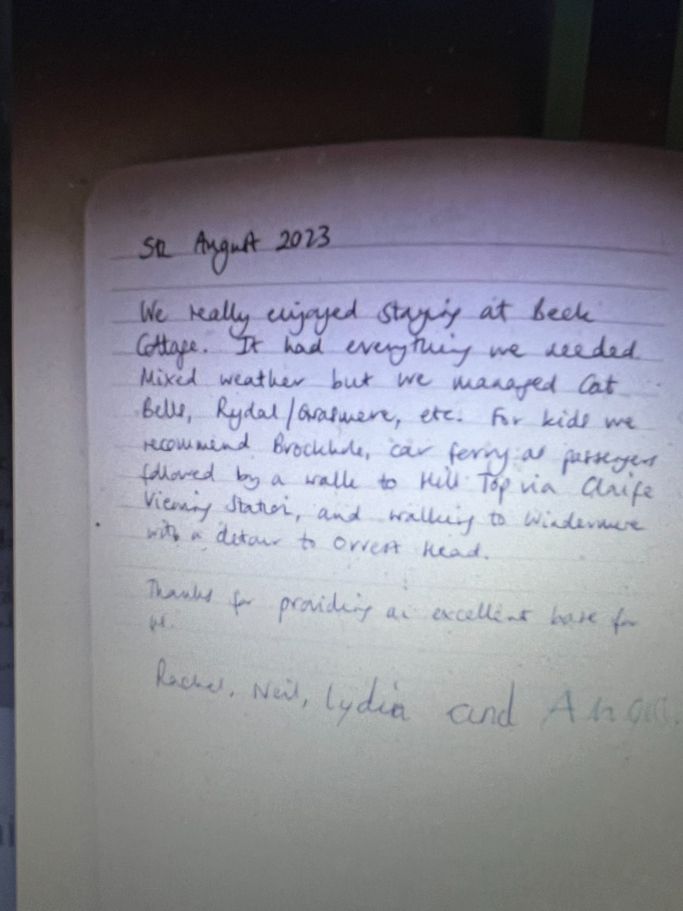 5th August 2023
We really enjoyed staying at Beck
Cottage. It had everything we needed
Mixed weather but we managed Cat
Bells, Rydal/Grasmere, etc. For kids we
recommend Brockhole, car ferry as passengers
followed by a walk to Hill Top via Claife
Viewing Station, and walking to Windermere
with a detour to Orrest Head.
Thanks for providing an excellent base for
us.
Rachel, Neil, Lydia and